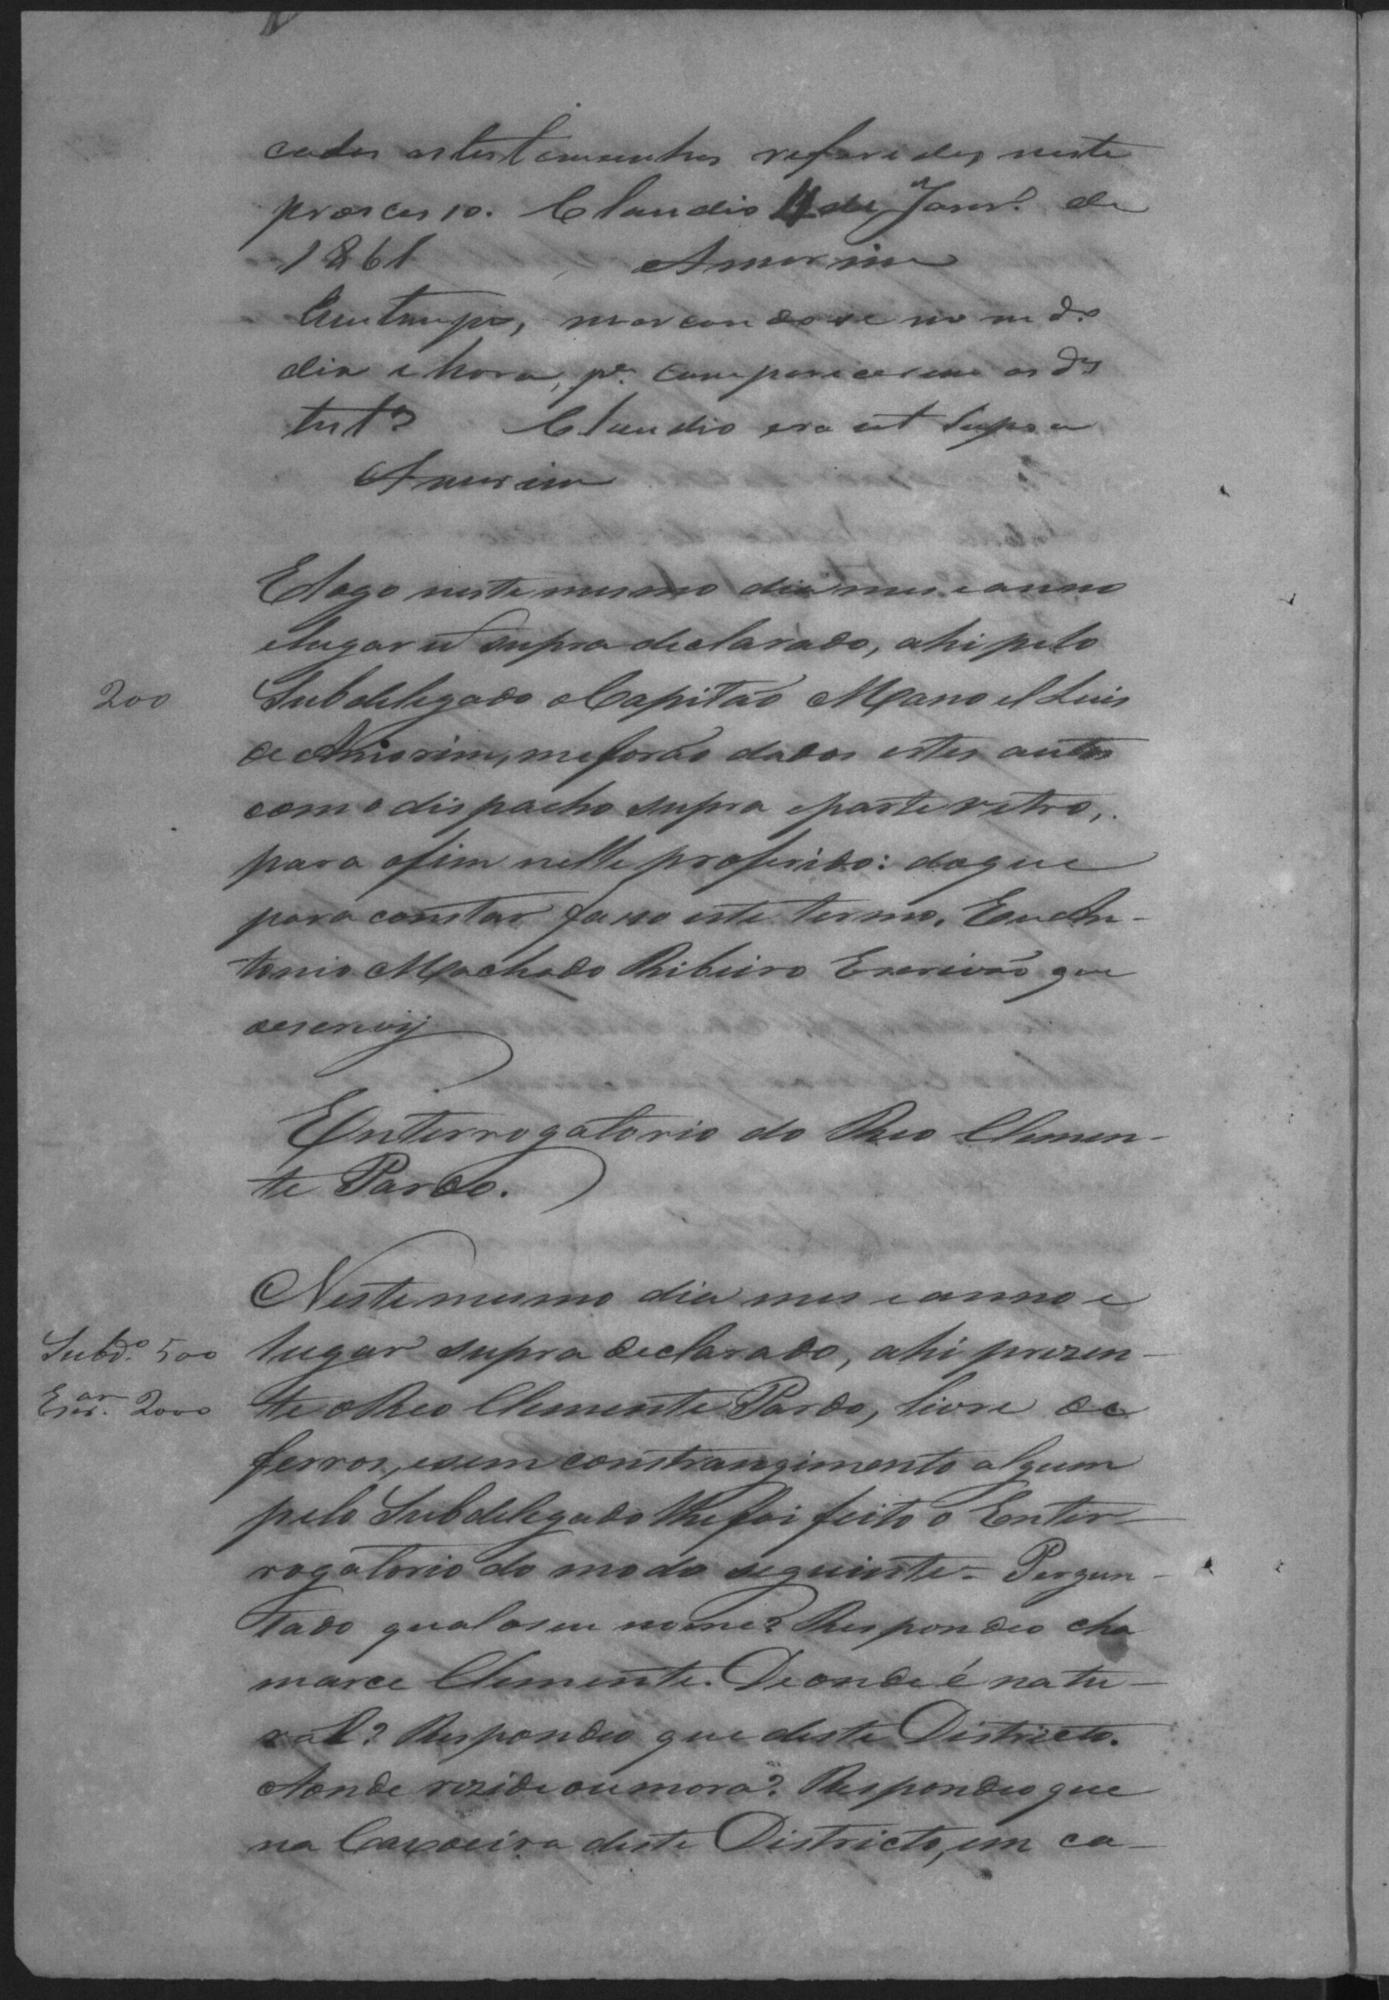 cadas as testemunhas referidas neste
processo. Claudio 4 de Janr.º de
1861 Amorim
Em tempo, marcandose no m do
dia e hora, p.ª compareserem as d.as
test.as Claudio era ut supra
Amorim
Elogo neste mesmo dia mes e anno
elugar u supra declarado, ahi pelo
200
Subdelegado o Capitão Manoel Luis
de Amorim, me forão dados estes autos
com o dispacho supra eparte retro,
para ofim nelle proferido: doque
para constar faso este termo. Eu An-
tonio Machado Ribeiro Escrivão que
oescrevÿ
Enterrogatorio do Reo Clemen-
te Pardo.
Neste mesmo dia mes e anno e
Subd.º 500
lugar supra declarado, ahi prezen-
Escr.am 2000
te o Reo Clemente Pardo, livre de
ferros, esem constrangimento algum
pelo Subdelegado lhe foi feito o Enter-
rogatorio do modo seguinte = Pergun-
tado qual oseu nome? Respondeo cha
marce Clemente. De onde é natu-
ral? Respondeo que deste Districto.
Aonde rezide ou mora? Respondeo que
na Caxoeira deste Districto, em ca-